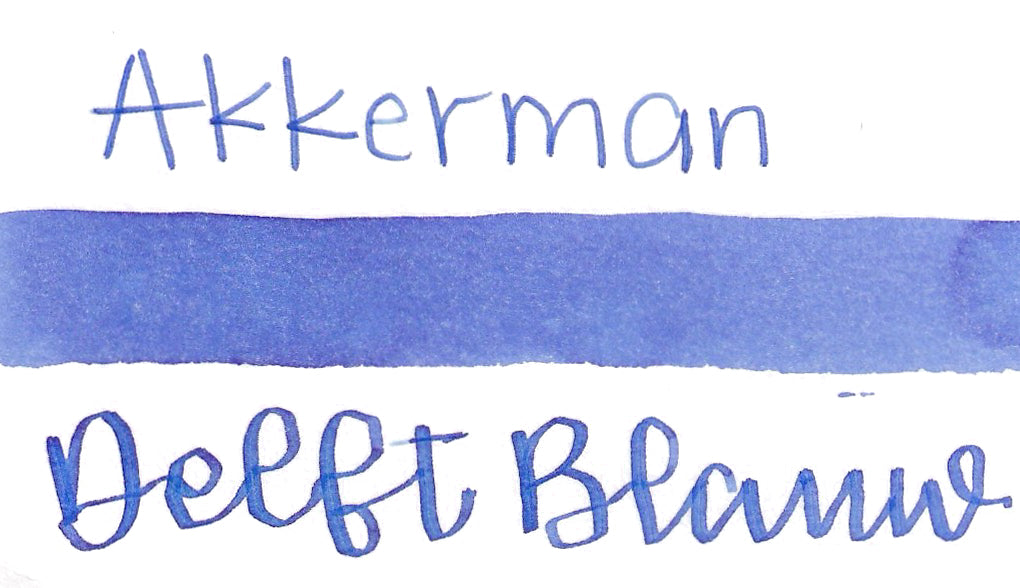 Akkerman
Delft Blauw